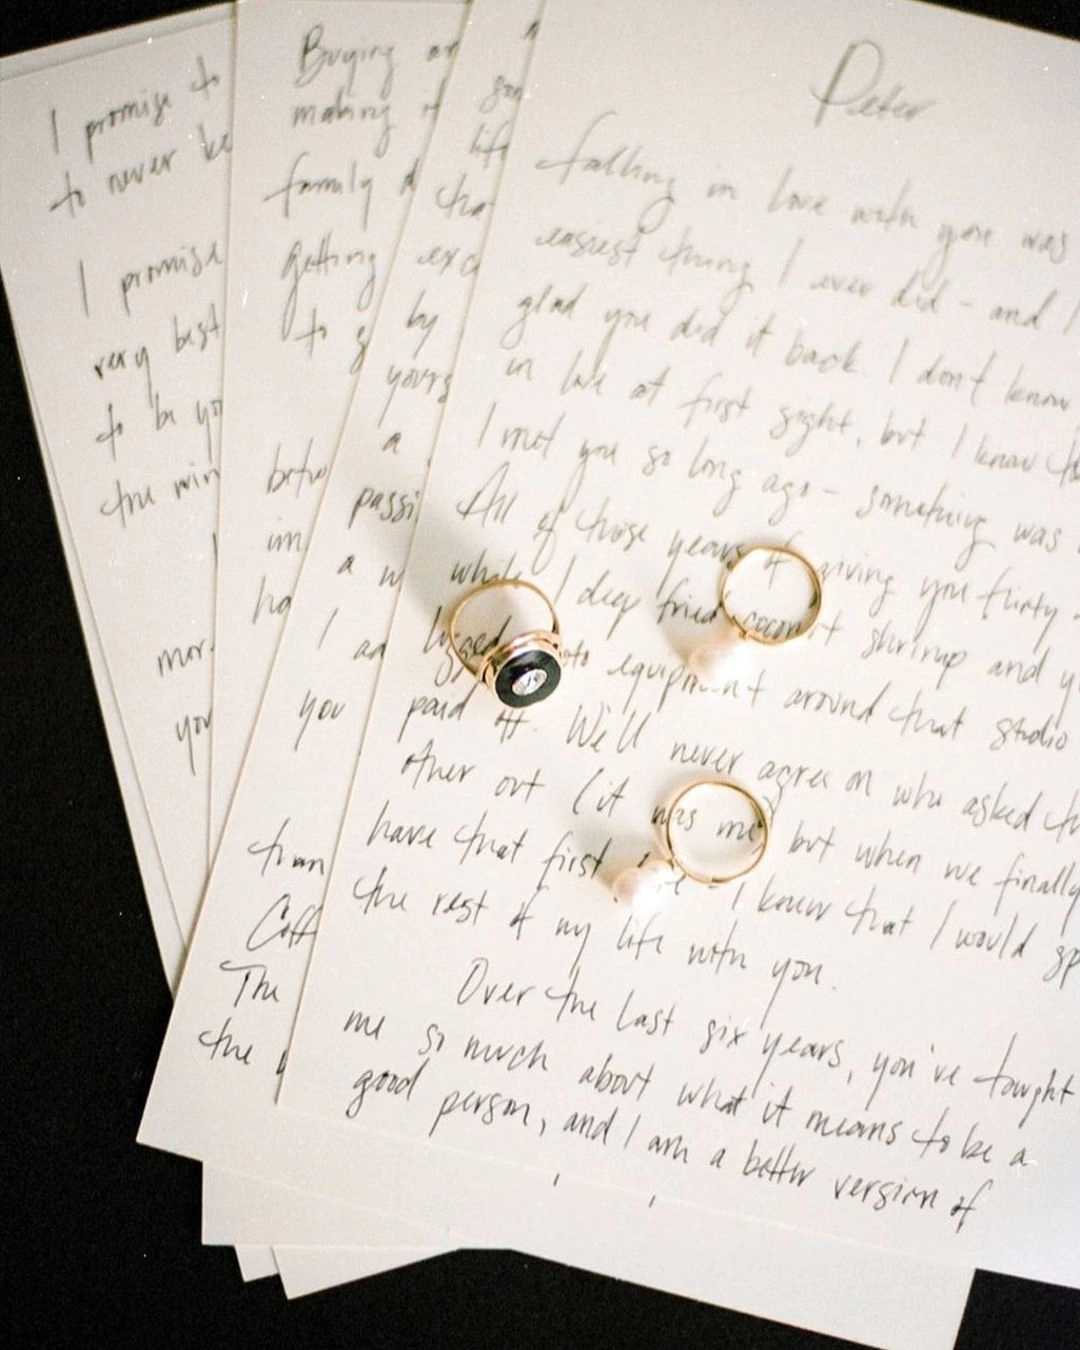 I promise to
to never ke
I promise
very best
to be yo
the win
mor
you
Buying an
making i
family d
getting
to g
betw
im
ha
son
life
tha
exc
by
yours
a
passi
a w
I ad
you
than
Coff
The
the
Peter
falling in love with you was
easiest thing I ever did – and I
glad you did it back. I don't know
in love at first sight, but I know tha
I met you so long ago – something was
All of those years of giving you flirty
while I deep fried coconut shrimp and y
lugged equipment around that studio
paid off. We'll never agree on who asked th
other out (it was me) but when we finally
have that first – I knew that I would sp
the rest of my life with you.
Over the last six years, you've taught
me so much about what it means to be a
good person, and I am a better version of